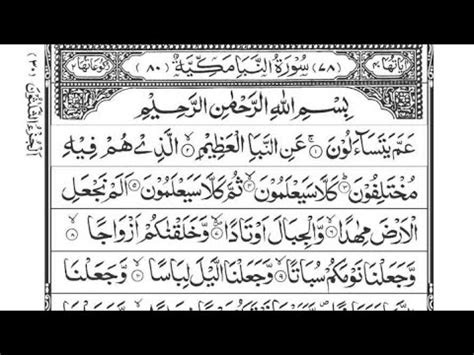 اٰيَاتُهَا ٤٠ (٧٨) سُوْرَةُ النَّبَاِ مَكِّيَّةٌ (٨٠) رُكُوْعَاتُهَا ٢
بِسْمِ اللّٰهِ الرَّحْمٰنِ الرَّحِيْمِ
عَمَّ يَتَسَآءَلُوْنَ ۚ ۝١ عَنِ النَّبَاِ الْعَظِيْمِ ۙ ۝٢ الَّذِیْ هُمْ فِيْهِ
مُخْتَلِفُوْنَ ؕ ۝٣ كَلَّا سَيَعْلَمُوْنَ ۙ ۝٤ ثُمَّ كَلَّا سَيَعْلَمُوْنَ ۝٥ اَلَمْ نَجْعَلِ
الْاَرْضَ مِهٰدًا ۙ ۝٦ وَّالْجِبَالَ اَوْتَادًا ۙ ۝٧ وَّخَلَقْنٰكُمْ اَزْوَاجًا ۙ ۝٨
وَّجَعَلْنَا نَوْمَكُمْ سُبَاتًا ۙ ۝٩ وَّجَعَلْنَا الَّيْلَ لِبَاسًا ۙ ۝١٠ وَّجَعَلْنَا
اَلْجُزْءُ الثَّلَاثُوْنَ (٣٠)